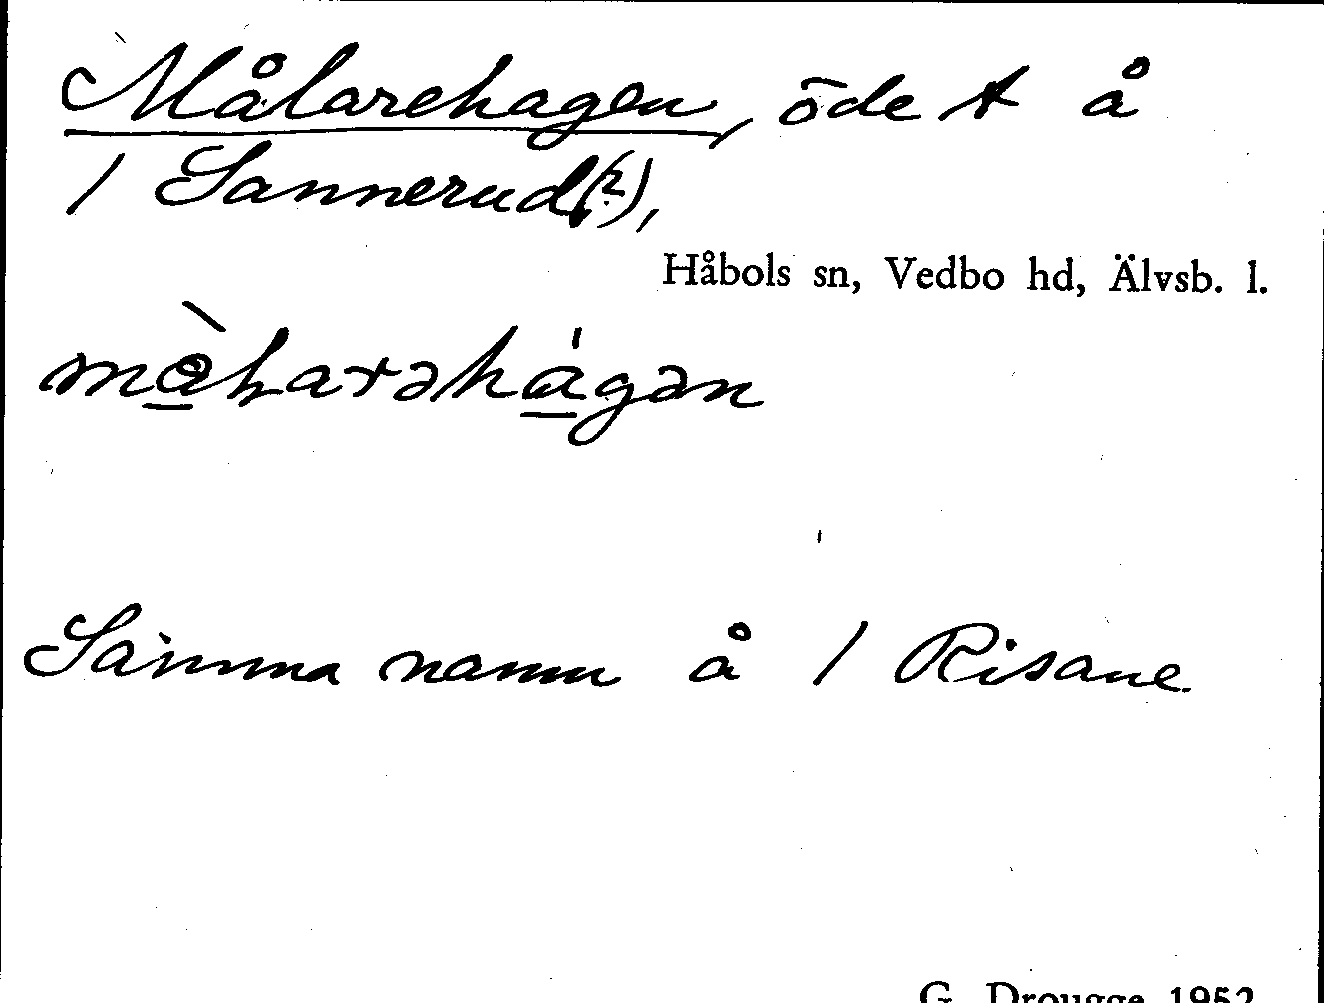 Målarehagen, öde t å
1 Sannerud(?),
Håbols sn, Vedbo hd, Älvsb. l.
Samma namn å 1 Risane.
G. Drougge 1952